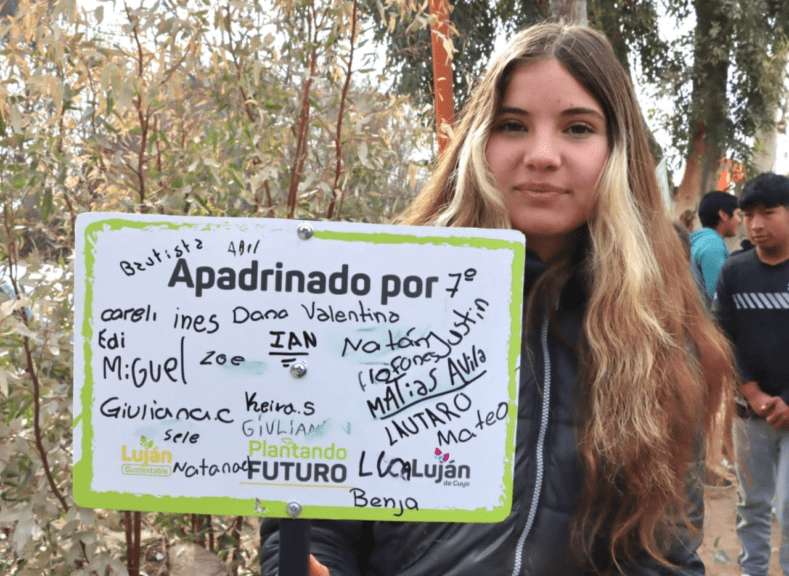 Bautista Abril
Apadrinado por 7º
careli ines Dana Valentina
Justin
Edi
IAN
Natan
MiGUEl Zoe
MATias AVila
Giuliana.c Keira.s
LAUTARO
Mateo
sele GIULIAN
Luján
Sustentable
Plantando
FUTURO
Luján
de Cuyo
Benja